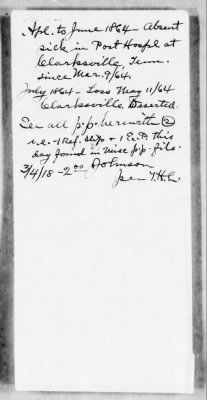 Apl. to June 1864 – Absent
sick in Post Hospl at
Clarksville, Tenn.
since Mar. 9/64.
July 1864 – Loss May 11/64
Clarksville Deserted.
See all p.p. herewith ②
v.e. – 1 Ref. slip + 1 E.P. this
day found in misc p.p. file.
3/4/18 – 2 00 Johnson
per